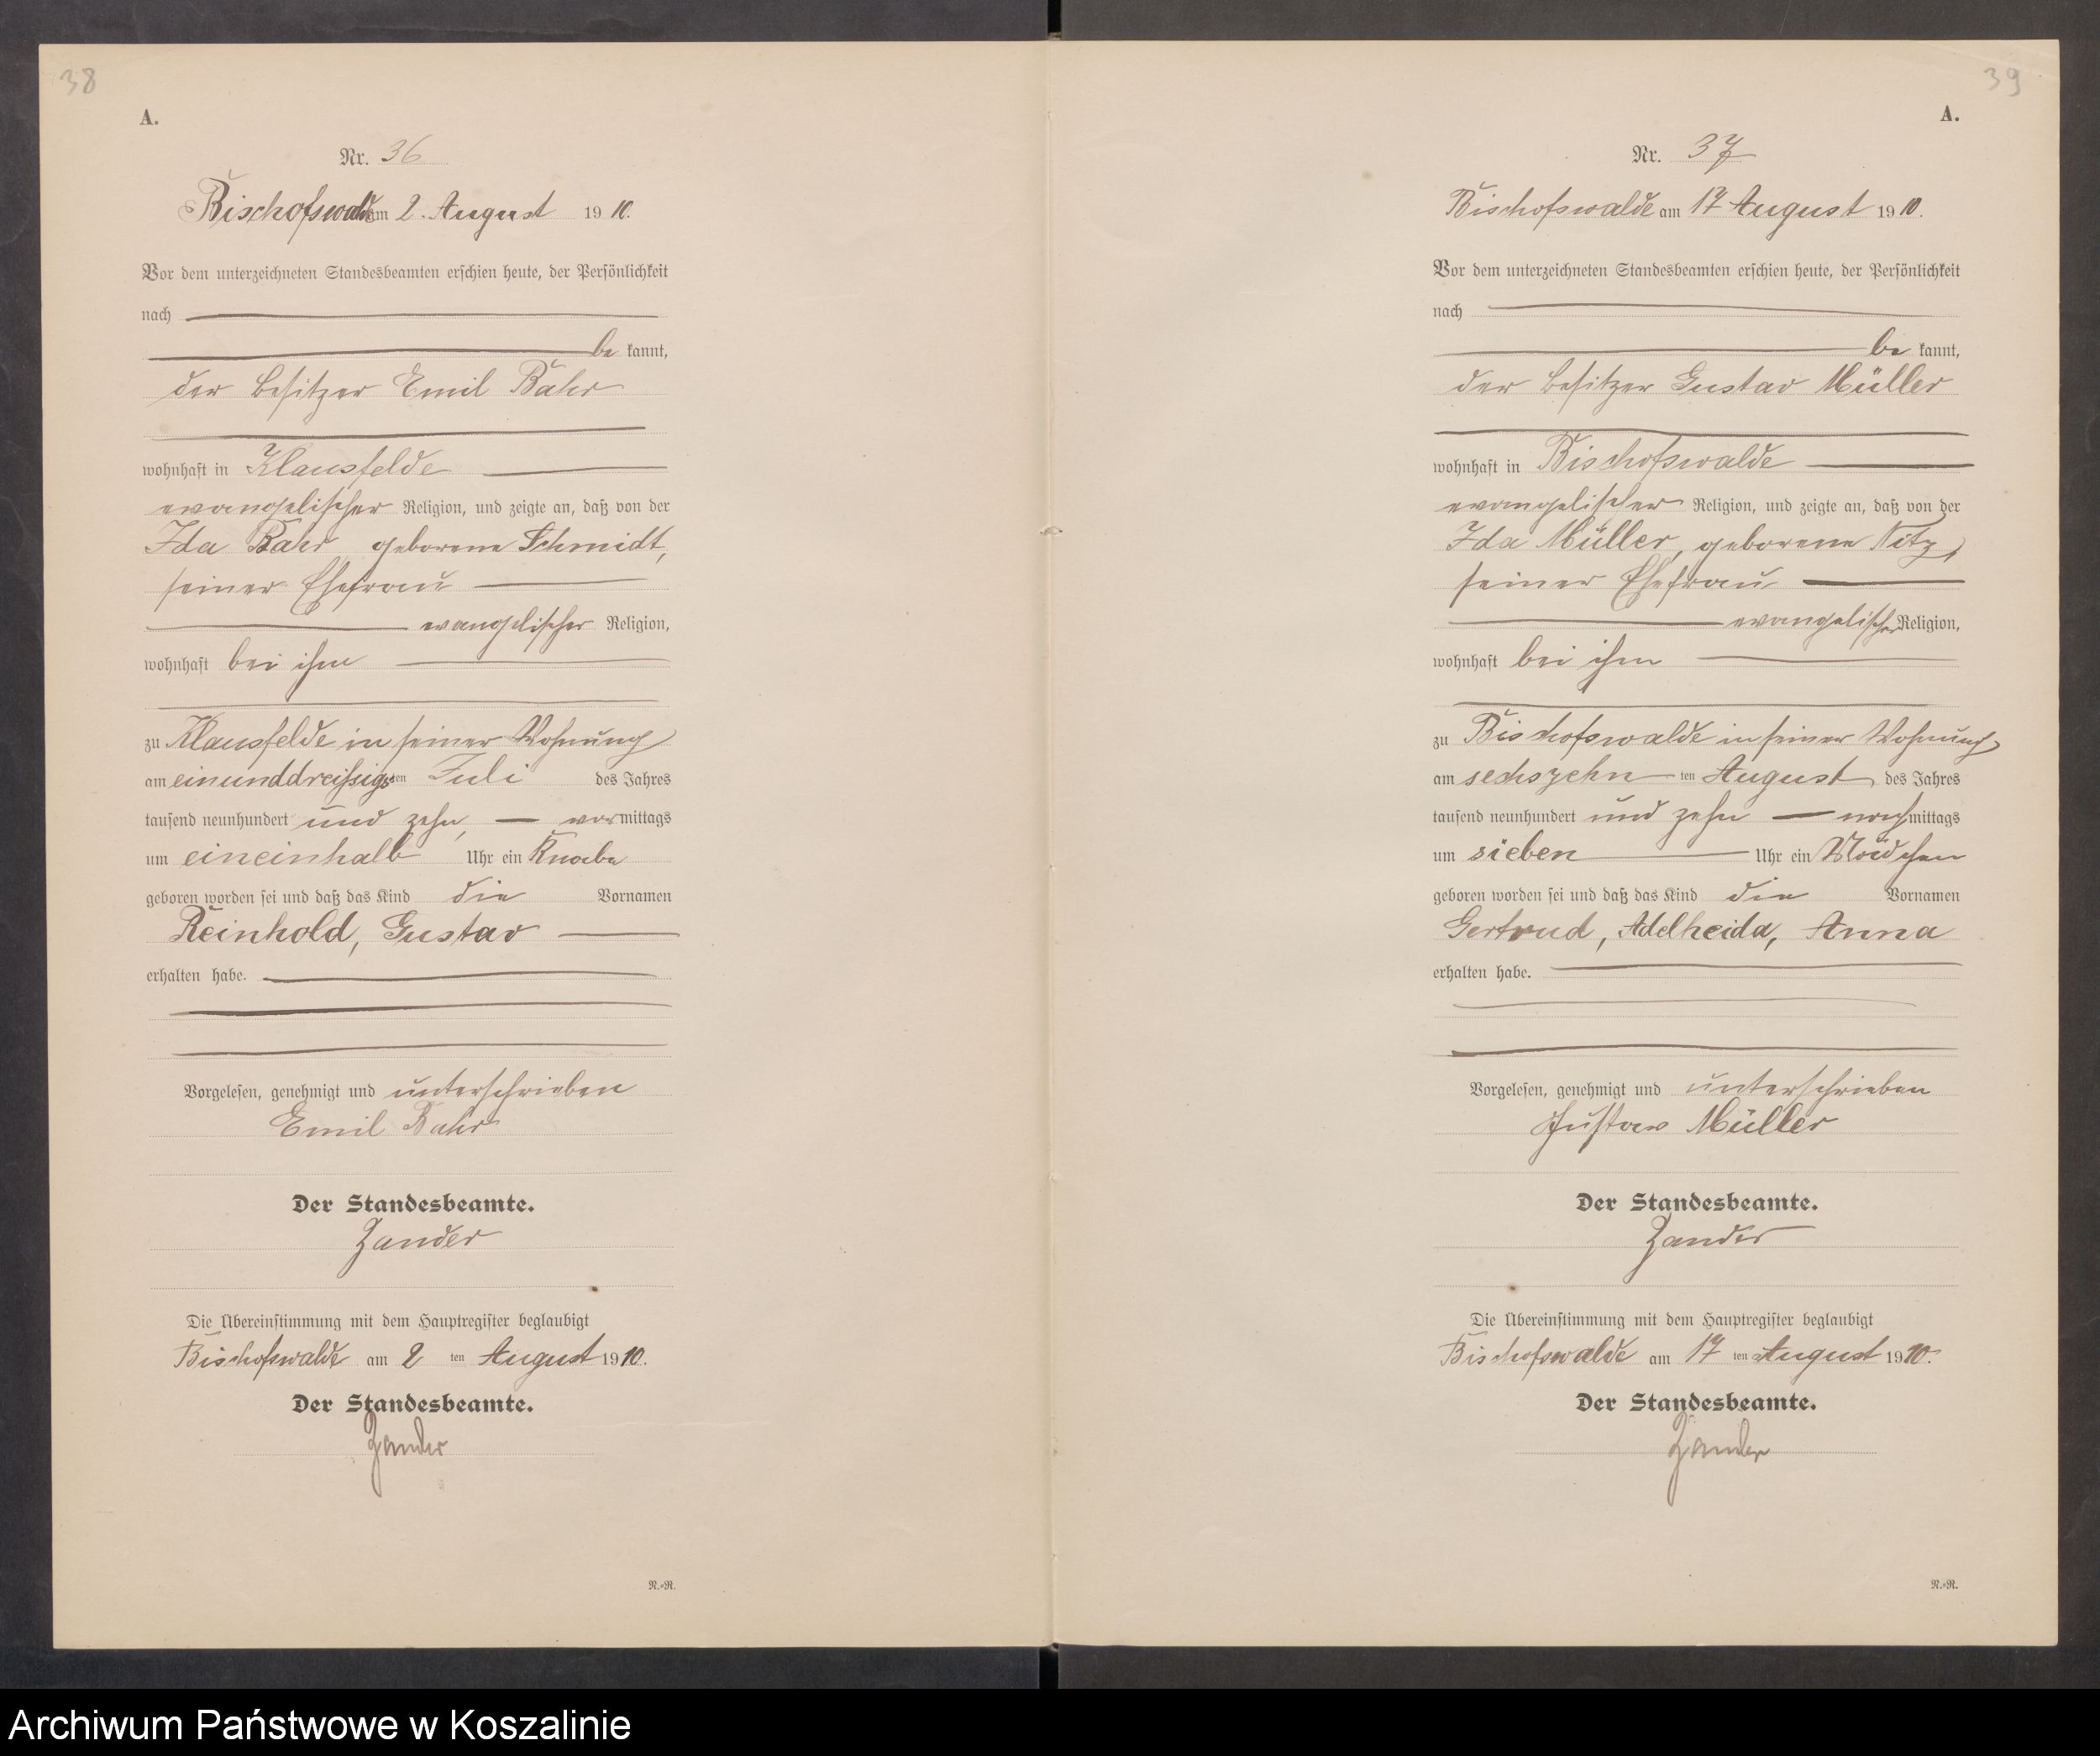 38
A.
Nr. 36
Bischofswalde am 2. August 1910.
Vor dem unterzeichneten Standesbeamten erschien heute, der Persönlichkeit
nach
be kannt,
der Besitzer Emil Bahr
wohnhaft in Klausfelde
evangelischer Religion, und zeigte an, daß von der
Ida Bahr geborene Schmidt,
seiner Ehefrau
evangelischer Religion,
wohnhaft bei ihm
zu Klausfelde in seiner Wohnung
am einunddreißigsten Juli des Jahres
tausend neunhundert und zehn, vormittags
um eineinhalb Uhr ein Knabe
geboren worden sei und daß das Kind die Vornamen
Reinhold, Gustav
erhalten habe.
Vorgelesen, genehmigt und unterschrieben
Emil Bahr
Der Standesbeamte.
Zander
Die Übereinstimmung mit dem Hauptregister beglaubigt
Bischofswalde am 2 ten August 1910.
Der Standesbeamte.
Zander
N.-R.
39
A.
Nr. 37
Bischofswalde am 17 August 1910.
Vor dem unterzeichneten Standesbeamten erschien heute, der Persönlichkeit
nach
be kannt,
der Besitzer Gustav Müller
wohnhaft in Bischofswalde
evangelischer Religion, und zeigte an, daß von der
Ida Müller, geborene Nitz,
seiner Ehefrau
evangelischer Religion,
wohnhaft bei ihm
zu Bischofswalde in seiner Wohnung
am sechszehn ten August des Jahres
tausend neunhundert und zehn nachmittags
um sieben Uhr ein Mädchen
geboren worden sei und daß das Kind die Vornamen
Gertrud, Adelheida, Anna
erhalten habe.
Vorgelesen, genehmigt und unterschrieben
Gustav Müller
Der Standesbeamte.
Zander
Die Übereinstimmung mit dem Hauptregister beglaubigt
Bischofswalde am 17 ten August 1910.
Der Standesbeamte.
Zander
N.-R.
Archiwum Państwowe w Koszalinie